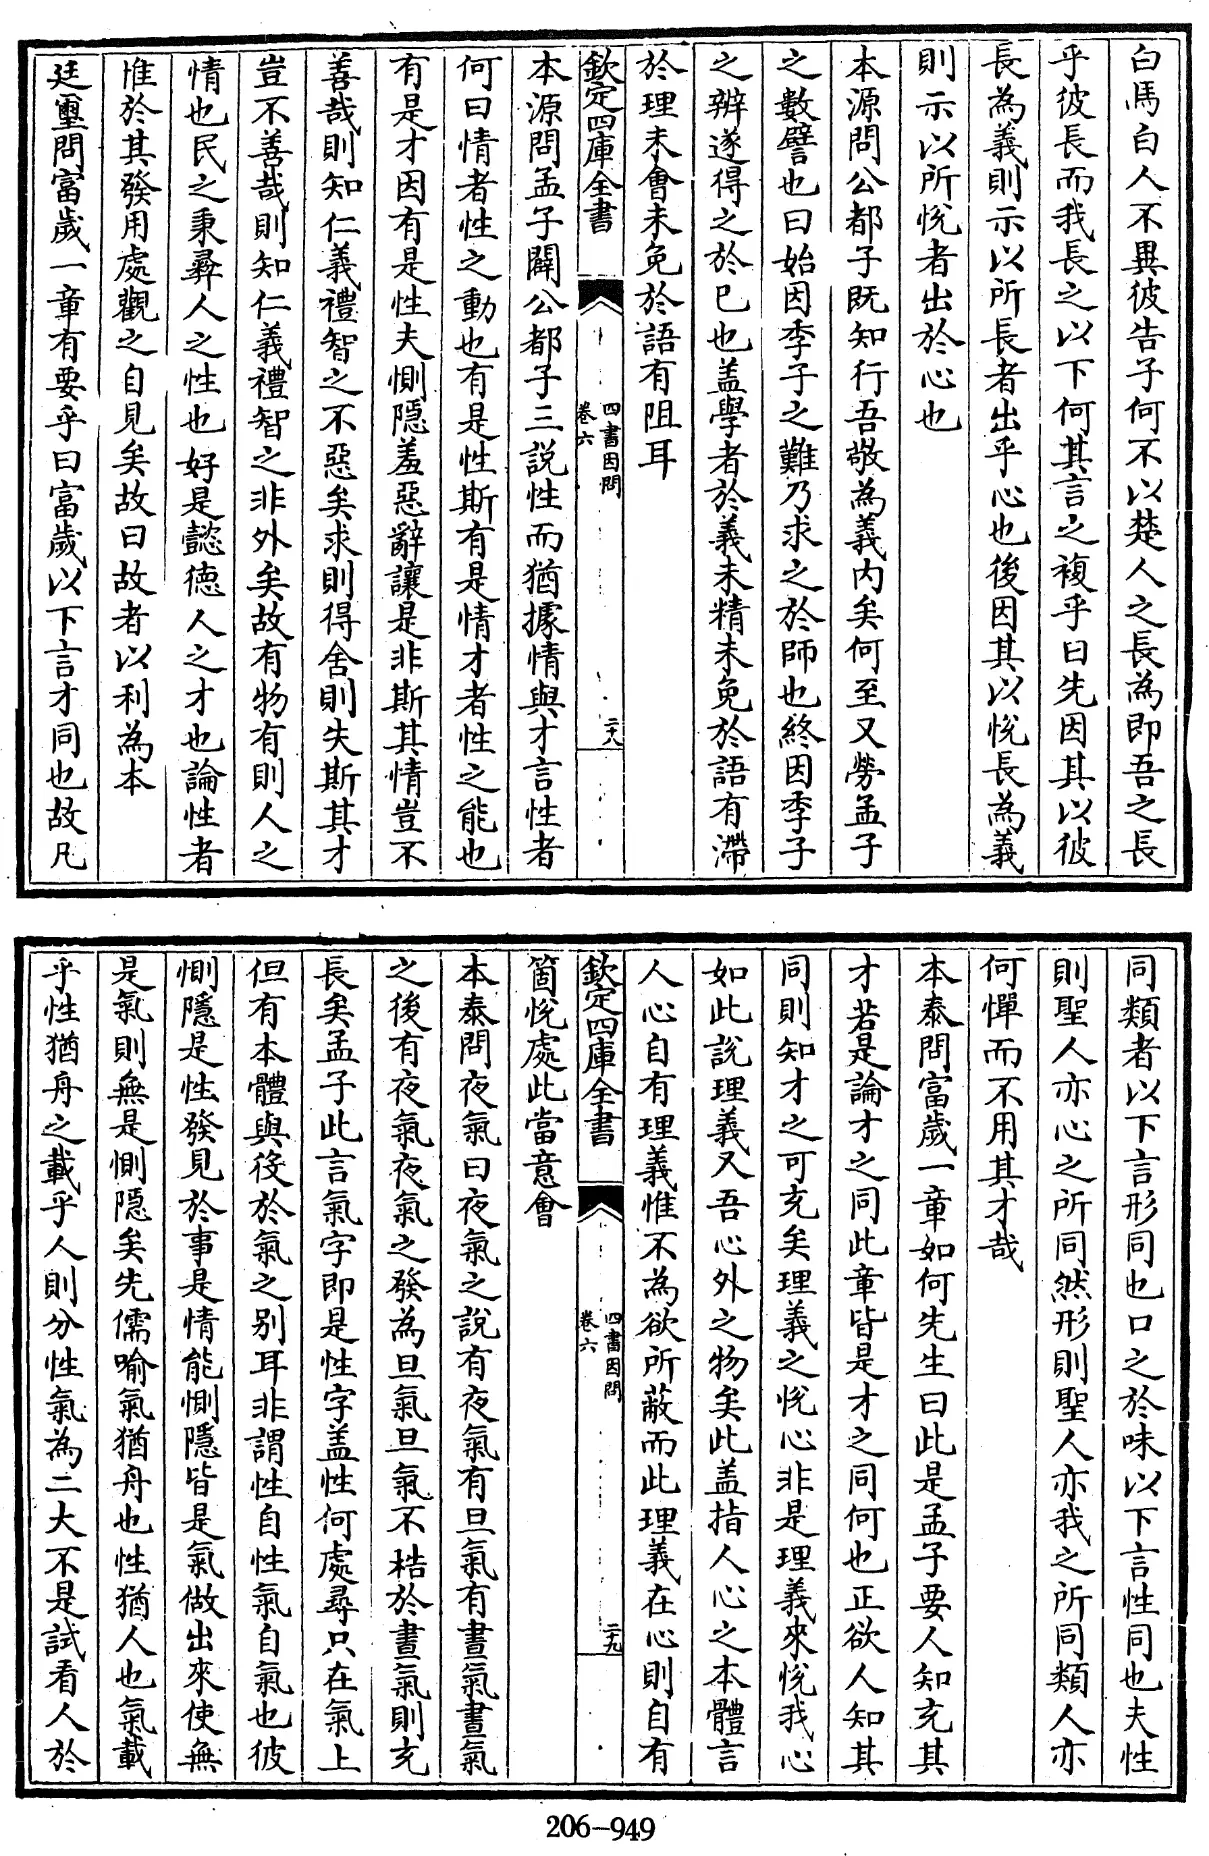 白馬白人不異彼告子何不以楚人之長為即吾之長
乎彼長而我長之以下何其言之複乎曰先因其以彼
長為義則示以所長者出乎心也後因其以悅長為義
則示以所悅者出於心也
本源問公都子既知行吾敬為義內矣何至又勞孟子
之數譬也曰始因季子之難乃求之於師也終因季子
之辨遂得之於已也盖學者於義未精未免於語有滯
於理未會未免於語有阻耳
欽定四庫全書
四書因問
卷六
二十八
本源問孟子闢公都子三說性而猶據情與才言性者
何曰情者性之動也有是性斯有是情才者性之能也
有是才因有是性夫惻隠羞惡辭讓是非斯其情豈不
善哉則知仁義禮智之不惡矣求則得舍則失斯其才
豈不善哉則知仁義禮智之非外矣故有物有則人之
情也民之秉彛人之性也好是懿德人之才也論性者
惟於其發用處觀之自見矣故曰故者以利為本
廷璽問富歲一章有要乎曰富歲以下言才同也故凡
同類者以下言形同也口之於味以下言性同也夫性
則聖人亦心之所同然形則聖人亦我之所同類人亦
何憚而不用其才哉
本泰問富歲一章如何先生曰此是孟子要人知充其
才若是論才之同此章皆是才之同何也正欲人知其
同則知才之可充矣理義之悅心非是理義來悅我心
如此說理義又吾心外之物矣此盖指人心之本體言
人心自有理義惟不為欲所蔽而此理義在心則自有
欽定四庫全書
四書因問
卷六
二十九
箇悅處此當意會
本泰問夜氣曰夜氣之說有夜氣有旦氣有晝氣晝氣
之後有夜氣夜氣之發為旦氣旦氣不梏於晝氣則充
長矣孟子此言氣字即是性字盖性何處尋只在氣上
但有本體與役於氣之别耳非謂性自性氣自氣也彼
惻隱是性發見於事是情能惻隱皆是氣做出來使無
是氣則無是惻隱矣先儒喻氣猶舟也性猶人也氣載
乎性猶舟之載乎人則分性氣為二大不是試看人於
206-949